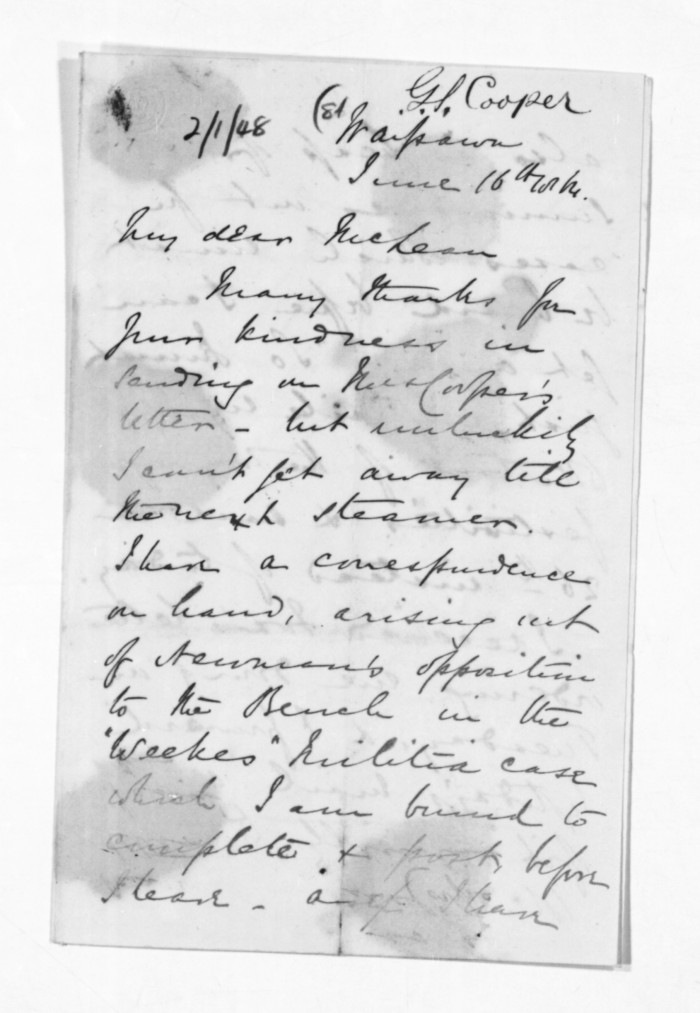 G.S. Cooper
2/1/48
Waipawa
June 16th
My dear McLean
Many thanks for
your kindness in
sending on Mrs Cooper's
letter - but unluckily
I can't get away till
the next steamer.
I have a correspondence
on hand, arising out
of Newman's opposition
to the Bench in the
"Weekes" Militia case
which I am bound to
complete & post, before
I leave - a I have